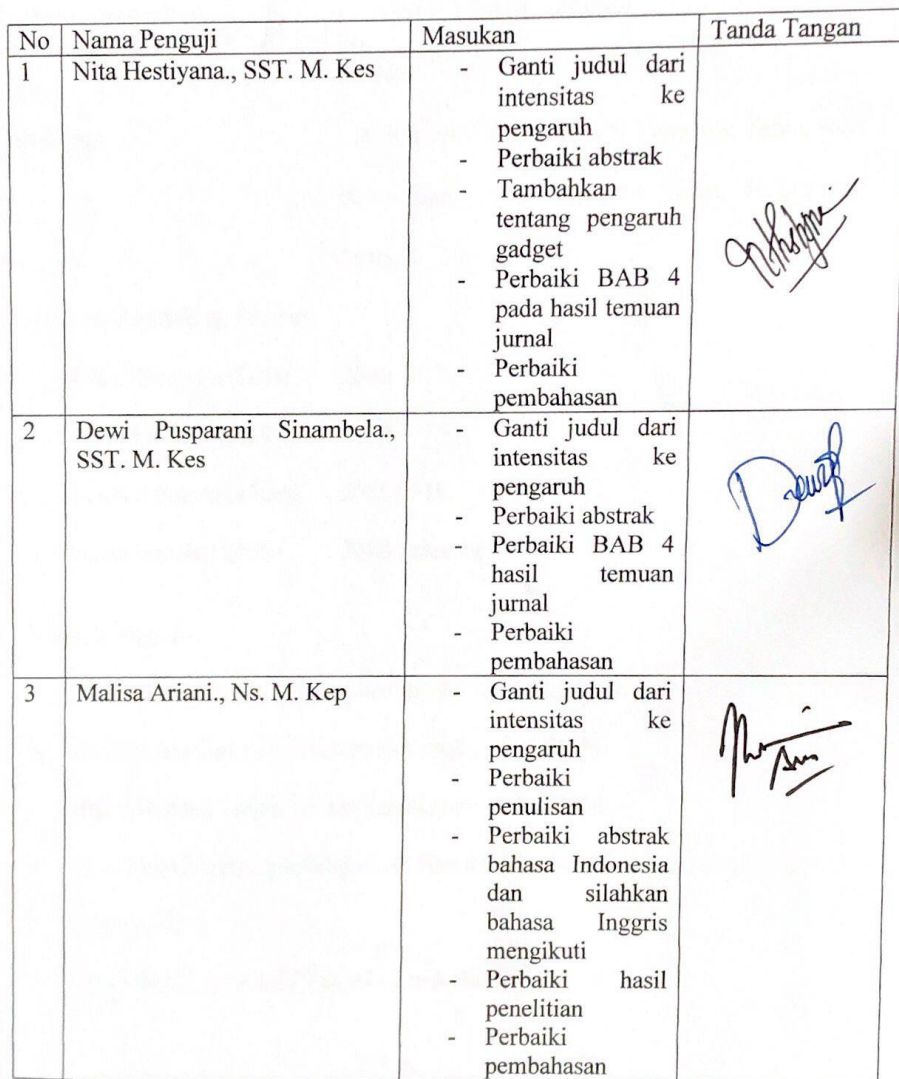 No Nama Penguji Masukan Tanda Tangan
1 Nita Hestiyana., SST. M. Kes - Ganti judul dari
intensitas ke
pengaruh
- Perbaiki abstrak
- Tambahkan
tentang pengaruh
gadget
- Perbaiki BAB 4
pada hasil temuan
jurnal
- Perbaiki
pembahasan
2 Dewi Pusparani Sinambela.,
SST. M. Kes
- Ganti judul dari
intensitas ke
pengaruh
- Perbaiki abstrak
- Perbaiki BAB 4
hasil temuan
jurnal
- Perbaiki
pembahasan
3 Malisa Ariani., Ns. M. Kep - Ganti judul dari
intensitas ke
pengaruh
- Perbaiki
penulisan
- Perbaiki abstrak
bahasa Indonesia
dan silahkan
bahasa Inggris
mengikuti
- Perbaiki hasil
penelitian
- Perbaiki
pembahasan